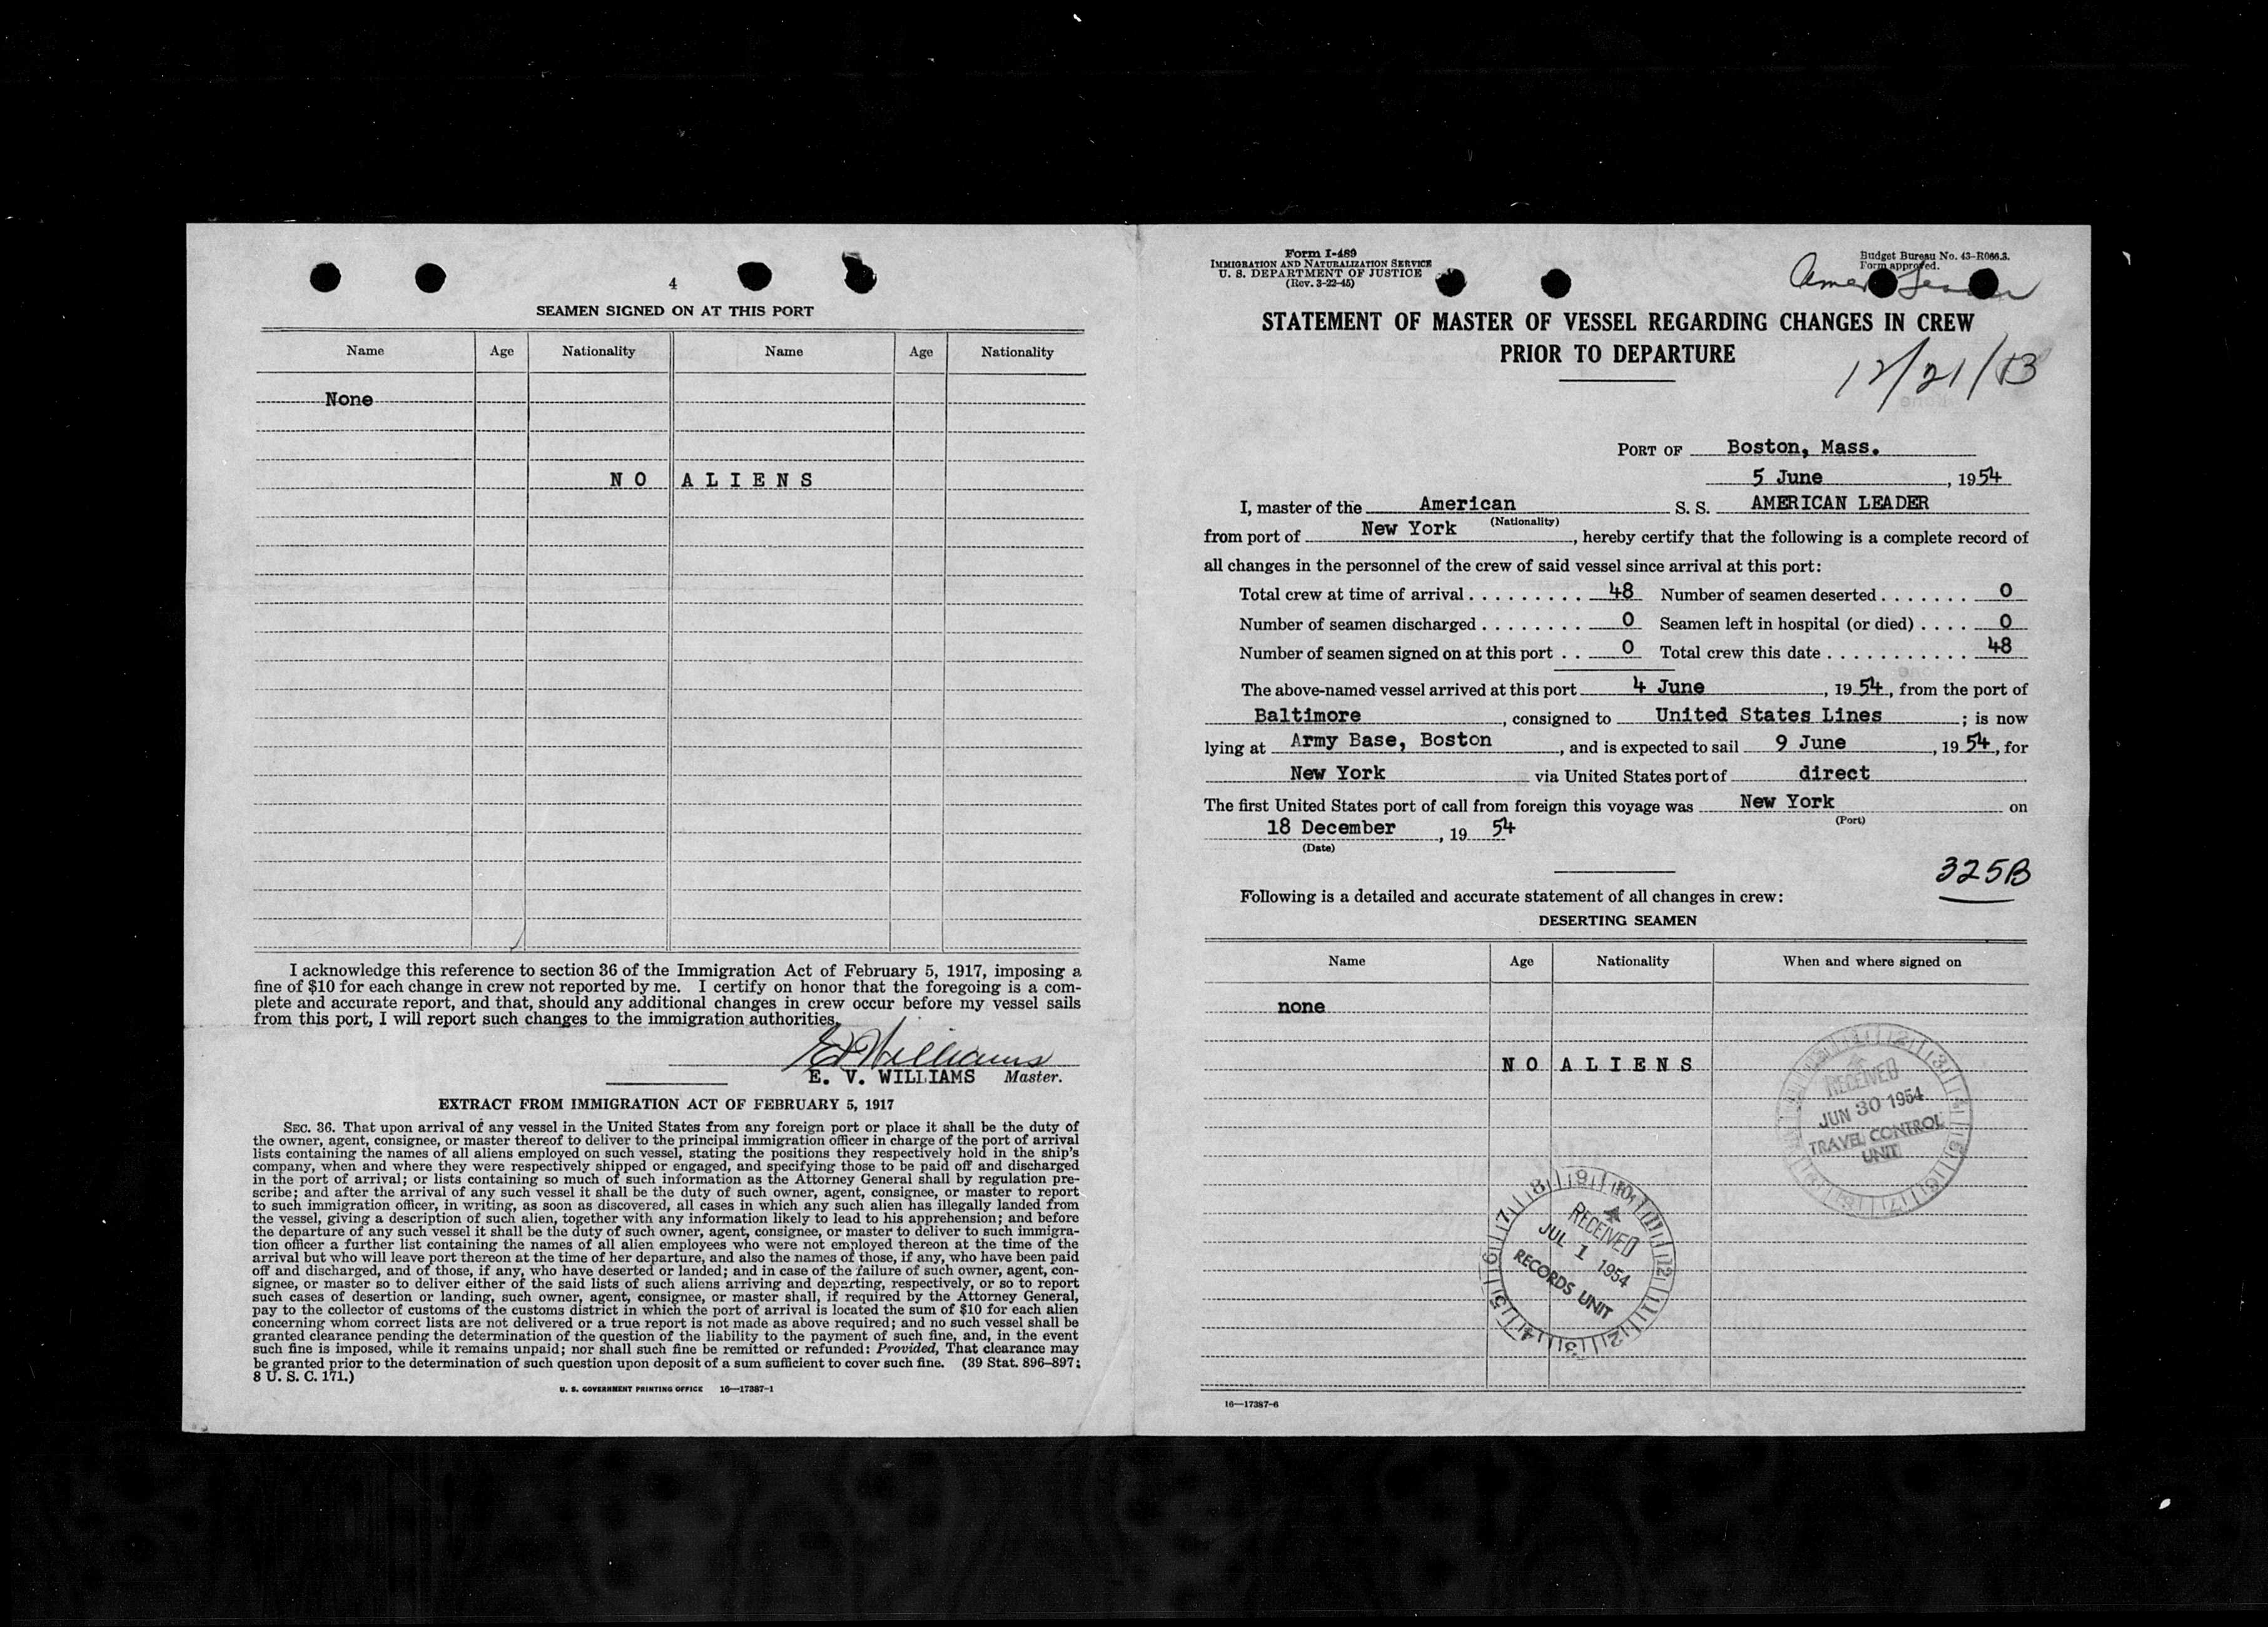 4
SEAMEN SIGNED ON AT THIS PORT
Name Age Nationality Name Age Nationality
None
NO ALIENS
I acknowledge this reference to section 36 of the Immigration Act of February 5, 1917, imposing a
fine of $10 for each change in crew not reported by me. I certify on honor that the foregoing is a com-
plete and accurate report, and that, should any additional changes in crew occur before my vessel sails
from this port, I will report such changes to the immigration authorities.
E. V. Williams
E. V. WILLIAMS Master.
EXTRACT FROM IMMIGRATION ACT OF FEBRUARY 5, 1917
SEC. 36. That upon arrival of any vessel in the United States from any foreign port or place it shall be the duty of
the owner, agent, consignee, or master thereof to deliver to the principal immigration officer in charge of the port of arrival
lists containing the names of all aliens employed on such vessel, stating the positions they respectively hold in the ship's
company, when and where they were respectively shipped or engaged, and specifying those to be paid off and discharged
in the port of arrival; or lists containing so much of such information as the Attorney General shall by regulation pre-
scribe; and after the arrival of any such vessel it shall be the duty of such owner, agent, consignee, or master to report
to such immigration officer, in writing, as soon as discovered, all cases in which any such alien has illegally landed from
the vessel, giving a description of such alien, together with any information likely to lead to his apprehension; and before
the departure of any such vessel it shall be the duty of such owner, agent, consignee, or master to deliver to such immigra-
tion officer a further list containing the names of all alien employees who were not employed thereon at the time of the
arrival but who will leave port thereon at the time of her departure, and also the names of those, if any, who have been paid
off and discharged, and of those, if any, who have deserted or landed; and in case of the failure of such owner, agent, con-
signee, or master so to deliver either of the said lists of such aliens arriving and departing, respectively, or so to report
such cases of desertion or landing, such owner, agent, consignee, or master shall, if required by the Attorney General,
pay to the collector of customs of the customs district in which the port of arrival is located the sum of $10 for each alien
concerning whom correct lists are not delivered or a true report is not made as above required; and no such vessel shall be
granted clearance pending the determination of the question of the liability to the payment of such fine, and, in the event
such fine is imposed, while it remains unpaid; nor shall such fine be remitted or refunded: Provided, That clearance may
be granted prior to the determination of such question upon deposit of a sum sufficient to cover such fine. (39 Stat. 896–897;
8 U. S. C. 171.)
U. S. GOVERNMENT PRINTING OFFICE 16—17387-1
Form I-489
IMMIGRATION AND NATURALIZATION SERVICE
U. S. DEPARTMENT OF JUSTICE
(Rev. 3-22-45)
Budget Bureau No. 43-R066.3.
Form approved.
Amer Leader
STATEMENT OF MASTER OF VESSEL REGARDING CHANGES IN CREW
PRIOR TO DEPARTURE
12/21/53
PORT OF Boston, Mass.
5 June, 1954
I, master of the American S. S. AMERICAN LEADER
(Nationality)
from port of New York, hereby certify that the following is a complete record of
all changes in the personnel of the crew of said vessel since arrival at this port:
Total crew at time of arrival . . . . . . . . . 48 Number of seamen deserted . . . . . . . 0
Number of seamen discharged . . . . . . . . 0 Seamen left in hospital (or died) . . . . 0
Number of seamen signed on at this port . . 0 Total crew this date . . . . . . . . . . . 48
The above-named vessel arrived at this port 4 June, 1954, from the port of
Baltimore, consigned to United States Lines; is now
lying at Army Base, Boston, and is expected to sail 9 June, 1954, for
New York via United States port of direct
The first United States port of call from foreign this voyage was New York on
(Port)
18 December, 19 54
(Date)
325B
Following is a detailed and accurate statement of all changes in crew:
DESERTING SEAMEN
Name Age Nationality When and where signed on
none
NO ALIENS
RECEIVED
JUN 30 1954
TRAVEL CONTROL
UNIT
RECEIVED
JUL 1 1954
RECORDS UNIT
16—17387-6